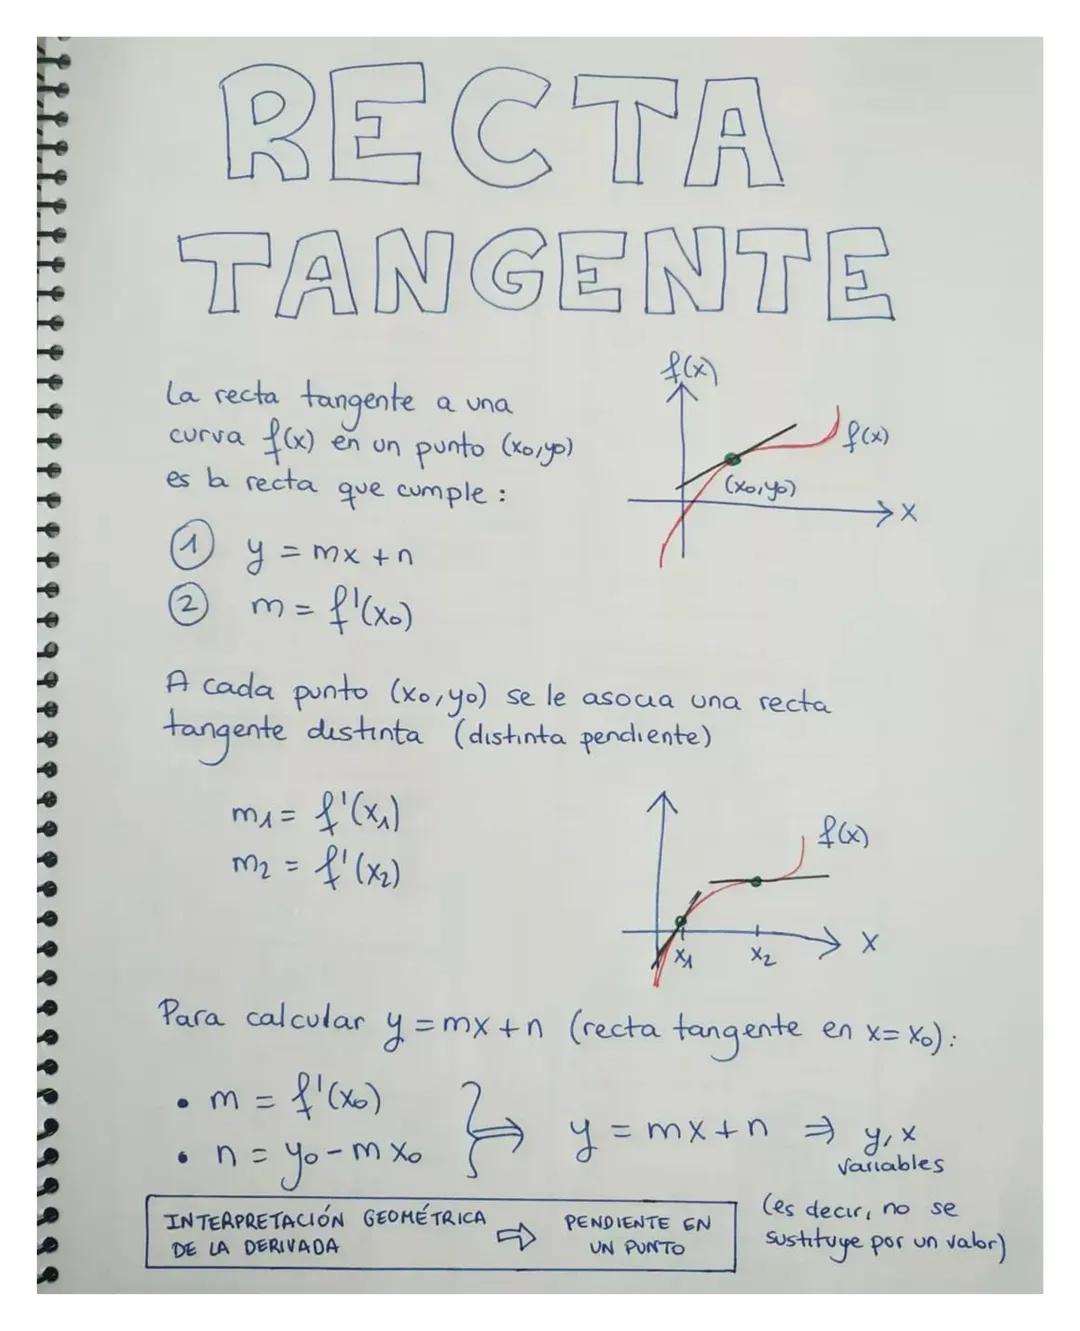 RECTA
TANGENTE
La recta tangente a una
curva f(x) en un punto (x₀,y₀)
es la recta que cumple:
① y = mx + n
② m = f'(x₀)
f(x)
f(x)
(x₀,y₀)
x
A cada punto (x₀,y₀) se le asocia una recta
tangente distinta (distinta pendiente)
m₁ = f'(x₁)
m₂ = f'(x₂)
f(x)
x₁ x₂ x
Para calcular y = mx + n (recta tangente en x = x₀):
• m = f'(x₀)
• n = y₀ - m x₀
} ⇒ y = mx + n ⇒ y, x
variables
(es decir, no se
sustituye por un valor)
INTERPRETACIÓN GEOMÉTRICA
DE LA DERIVADA
⇨
PENDIENTE EN
UN PUNTO